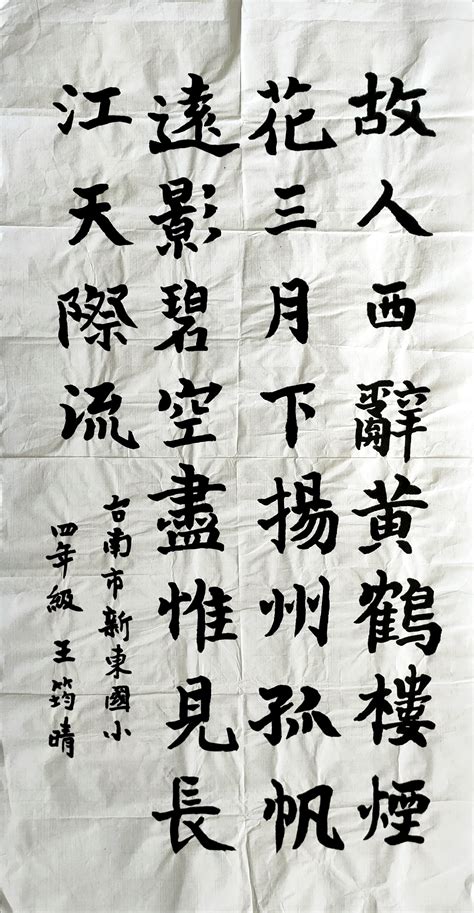 故人西辭黃鶴樓煙
花三月下揚州孤帆
遠影碧空盡惟見長
江天際流
台南市新東國小
四年級 王筠晴